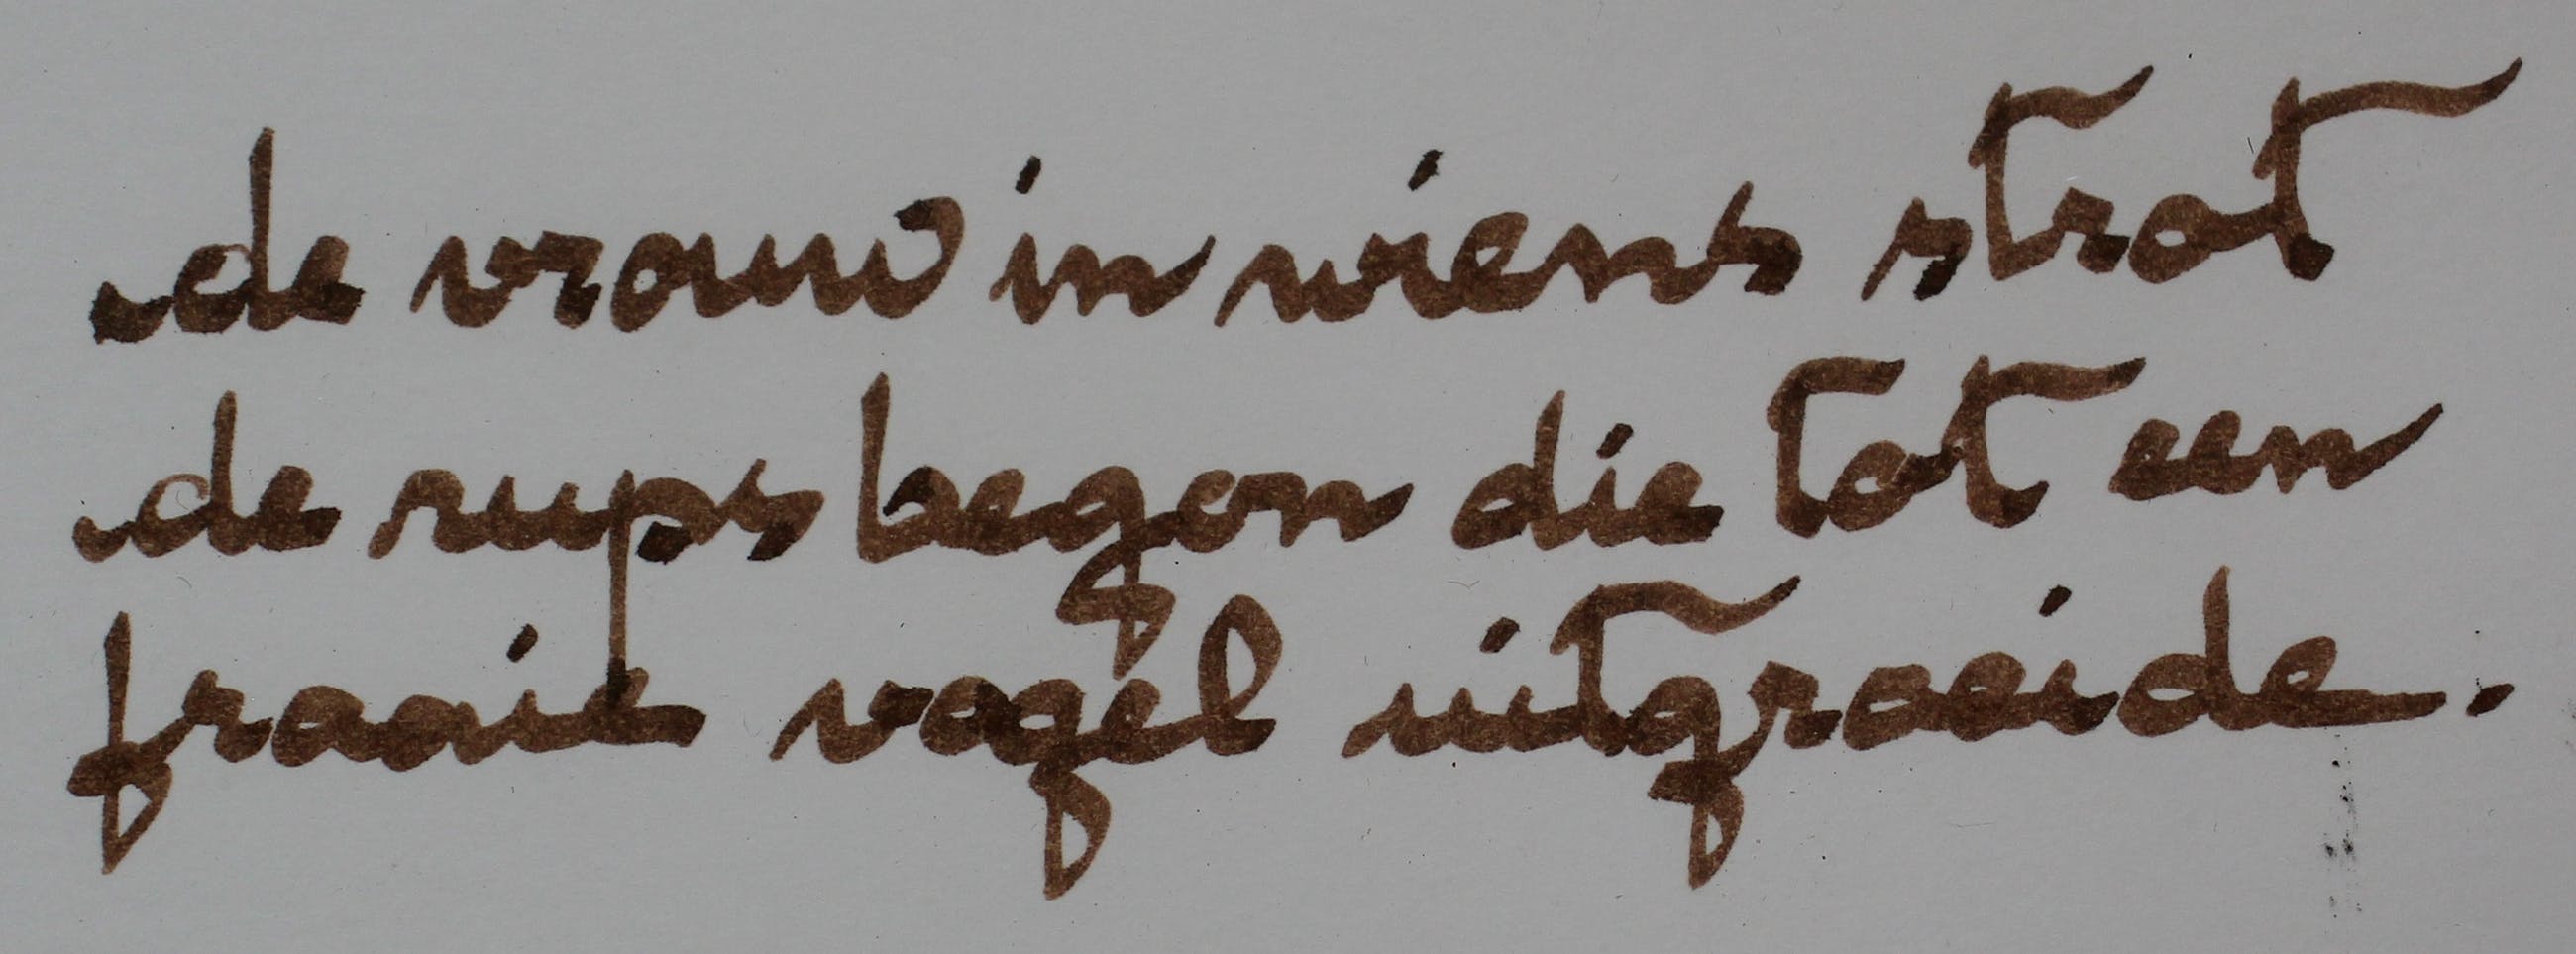 de vrouw in wiens strot
de rups begon die tot een
fraaie vogel uitgroeide.